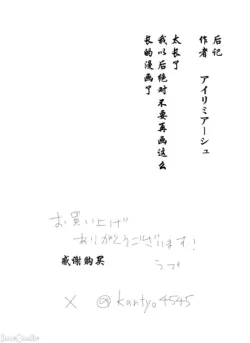 后记
作者　アイリミアーシュ
太长了
我以后绝对不要再画这么
长的漫画了
お買い上げ
ありがとうございます!
感谢购买
X @kantyo4545